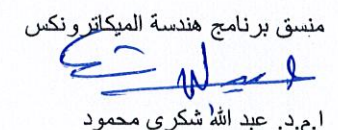 منسق برنامج هندسة الميكاترونكس
ا.م.د. عبد الله شكري محمود